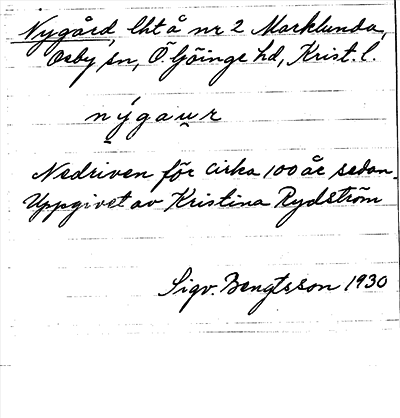 Nygård, lht å nr 2 Marklunda,
Osby sn, Ö. Göinge hd, Krist. l.
nýgau̯r
Nedriven för cirka 100 år sedan.
Uppgivet av Kristina Rydström
Sigv. Bengtsson 1930